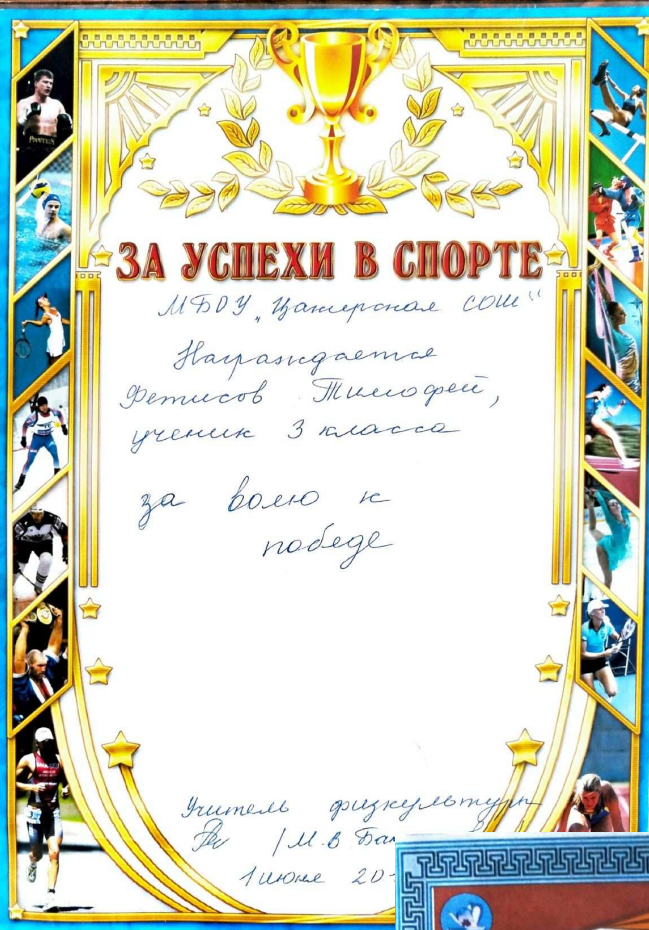 ЗА УСПЕХИ В СПОРТЕ
МБОУ „Цакирская СОШ“
Награждается
Фетисов Тимофей,
ученик 3 класса
за волю к
победе
Учитель физкультуры
/М.В
1 июня